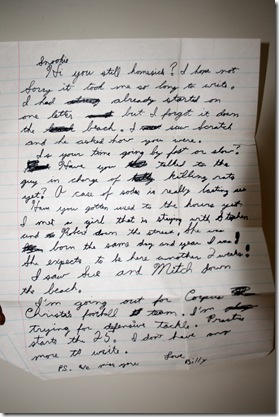 Snookie
Hi you still homesick? I hope not
Sorry it took me so long to write.
I had already started on
one letter but I forgot it down
the beach. I saw Scratch
and he asked how you were.
Is your time going by fast or slow?
Have you talked to the
guy in charge of killing rats
yet? A case of sodas is really lasting
Have you gotten used to the hours yet.
I met a girl that is staying with Stephen
and Robert down the street. She was
born the same day and year I was!
She expects to be here another 2 weeks!
I saw Sue and Mitch down
the beach.
I'm going out for Corpus
Christi's football team. I'm
trying for defensive tackle. Practice
starts the 25. I don't have any
more to write.
Love,
P.S. We miss you Billy